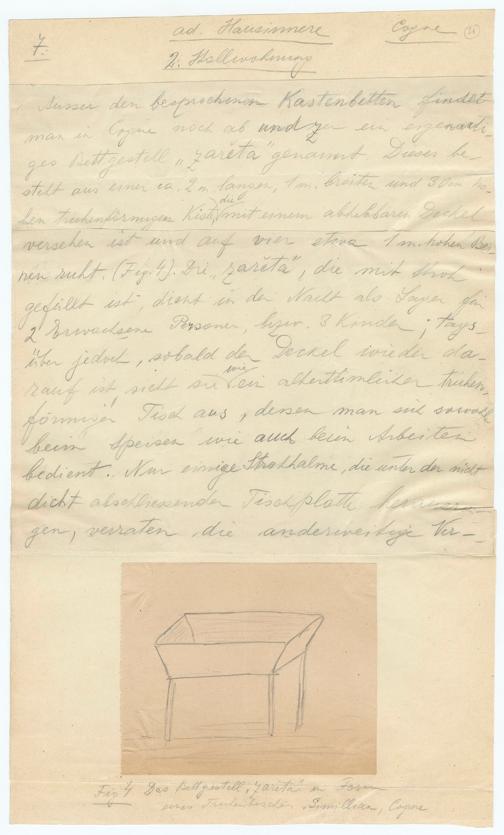 7.
ad. Hausinnere
Cogne
2. Stallwohnungs
Ausser den besprochenen Kastenbetten findet
man in Cogne noch ab und zu ein eigenarti-
ges Bettgestell „zarèta" genannt. Dieses be-
steht aus einer ca. 2 m. langen, 1 m. breiten und 30 cm ho-
hen truhenförmigen Kiste, die mit einem abhebbaren Deckel
versehen ist und auf vier etwa 1 m. hohen Bei-
nen ruht. (Fig. 4). Die „zarèta", die mit Stroh
gefüllt ist, dient in der Nacht als Lager für
2 Erwachsene Personen, bzw. 3 Kinder; tags-
über jedoch, sobald der Deckel wieder da-
rauf ist, sieht sie wie ein altertümlicher truhen-
förmiger Tisch aus, dessen man sich sowohl
beim Speisen wie auch beim Arbeiten
bedient. Nur einige Strohhalme, die unter der nicht
dicht abschliessenden Tischplatte herausra-
gen, verraten die anderweitige Ver-
Fig 4 Das Bettgestell „zarèta" in Form
eines Truhentisches. Gimillian, Cogne